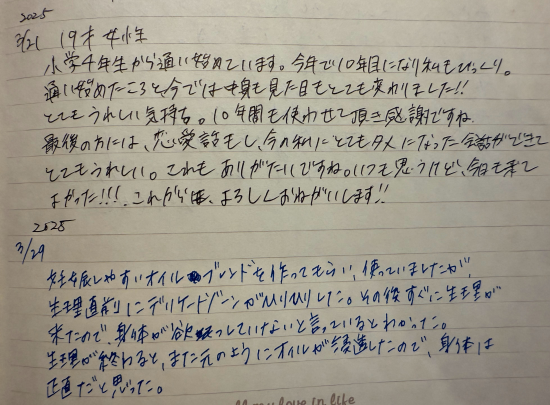 2025
3/21 19才 女性
小学4年生から通い始めています。今年で10年目になり私もびっくり。
通い始めたころと今では中身も見た目もとても変わりました!!
とてもうれしい気持ち。10年間も使わせて頂き感謝ですね
最後の方には、恋愛話もし、今の私にとてもタメになった会話ができて
とてもうれしい。これもありがたいですね。いつも思うけど、今日も来て
よかった!!!。これからは、よろしくおねがいします!!
2025
3/29
妊娠しやすいオイルブレンドを作ってもらい、使っていましたが、
生理直前にデリケートゾーンがひりひりした。その後すぐに生理が
来たので、身体が欲っしていないと言っているとわかった。
生理が終わると、また元のようにオイルが浸透したので、身体は
正直だと思った。
love in life